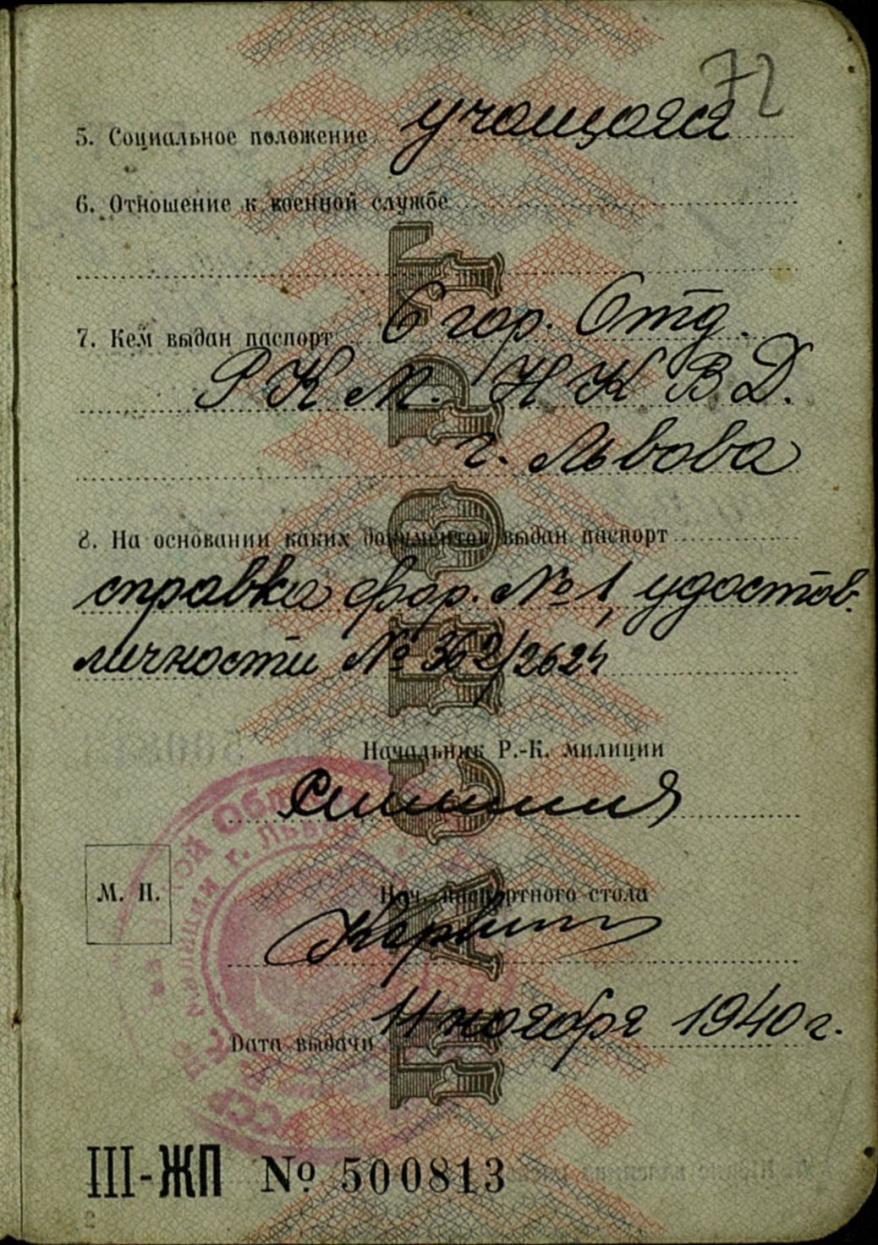 72
5. Социальное положение учащаяся
6. Отношение к военной службе
7. Кем выдан паспорт 6 гор. Отд.
Р К М. Н К В Д.
г. Львова
8. На основании каких документов выдан паспорт
справка фор. № 1, удостов.
личности № 362/2624
Начальник Р.-К. милиции
М. П.
Нач. паспортного стола
Дата выдачи 11 ноября 1940 г.
ПАСПОРТ
III-ЖП № 500813
2